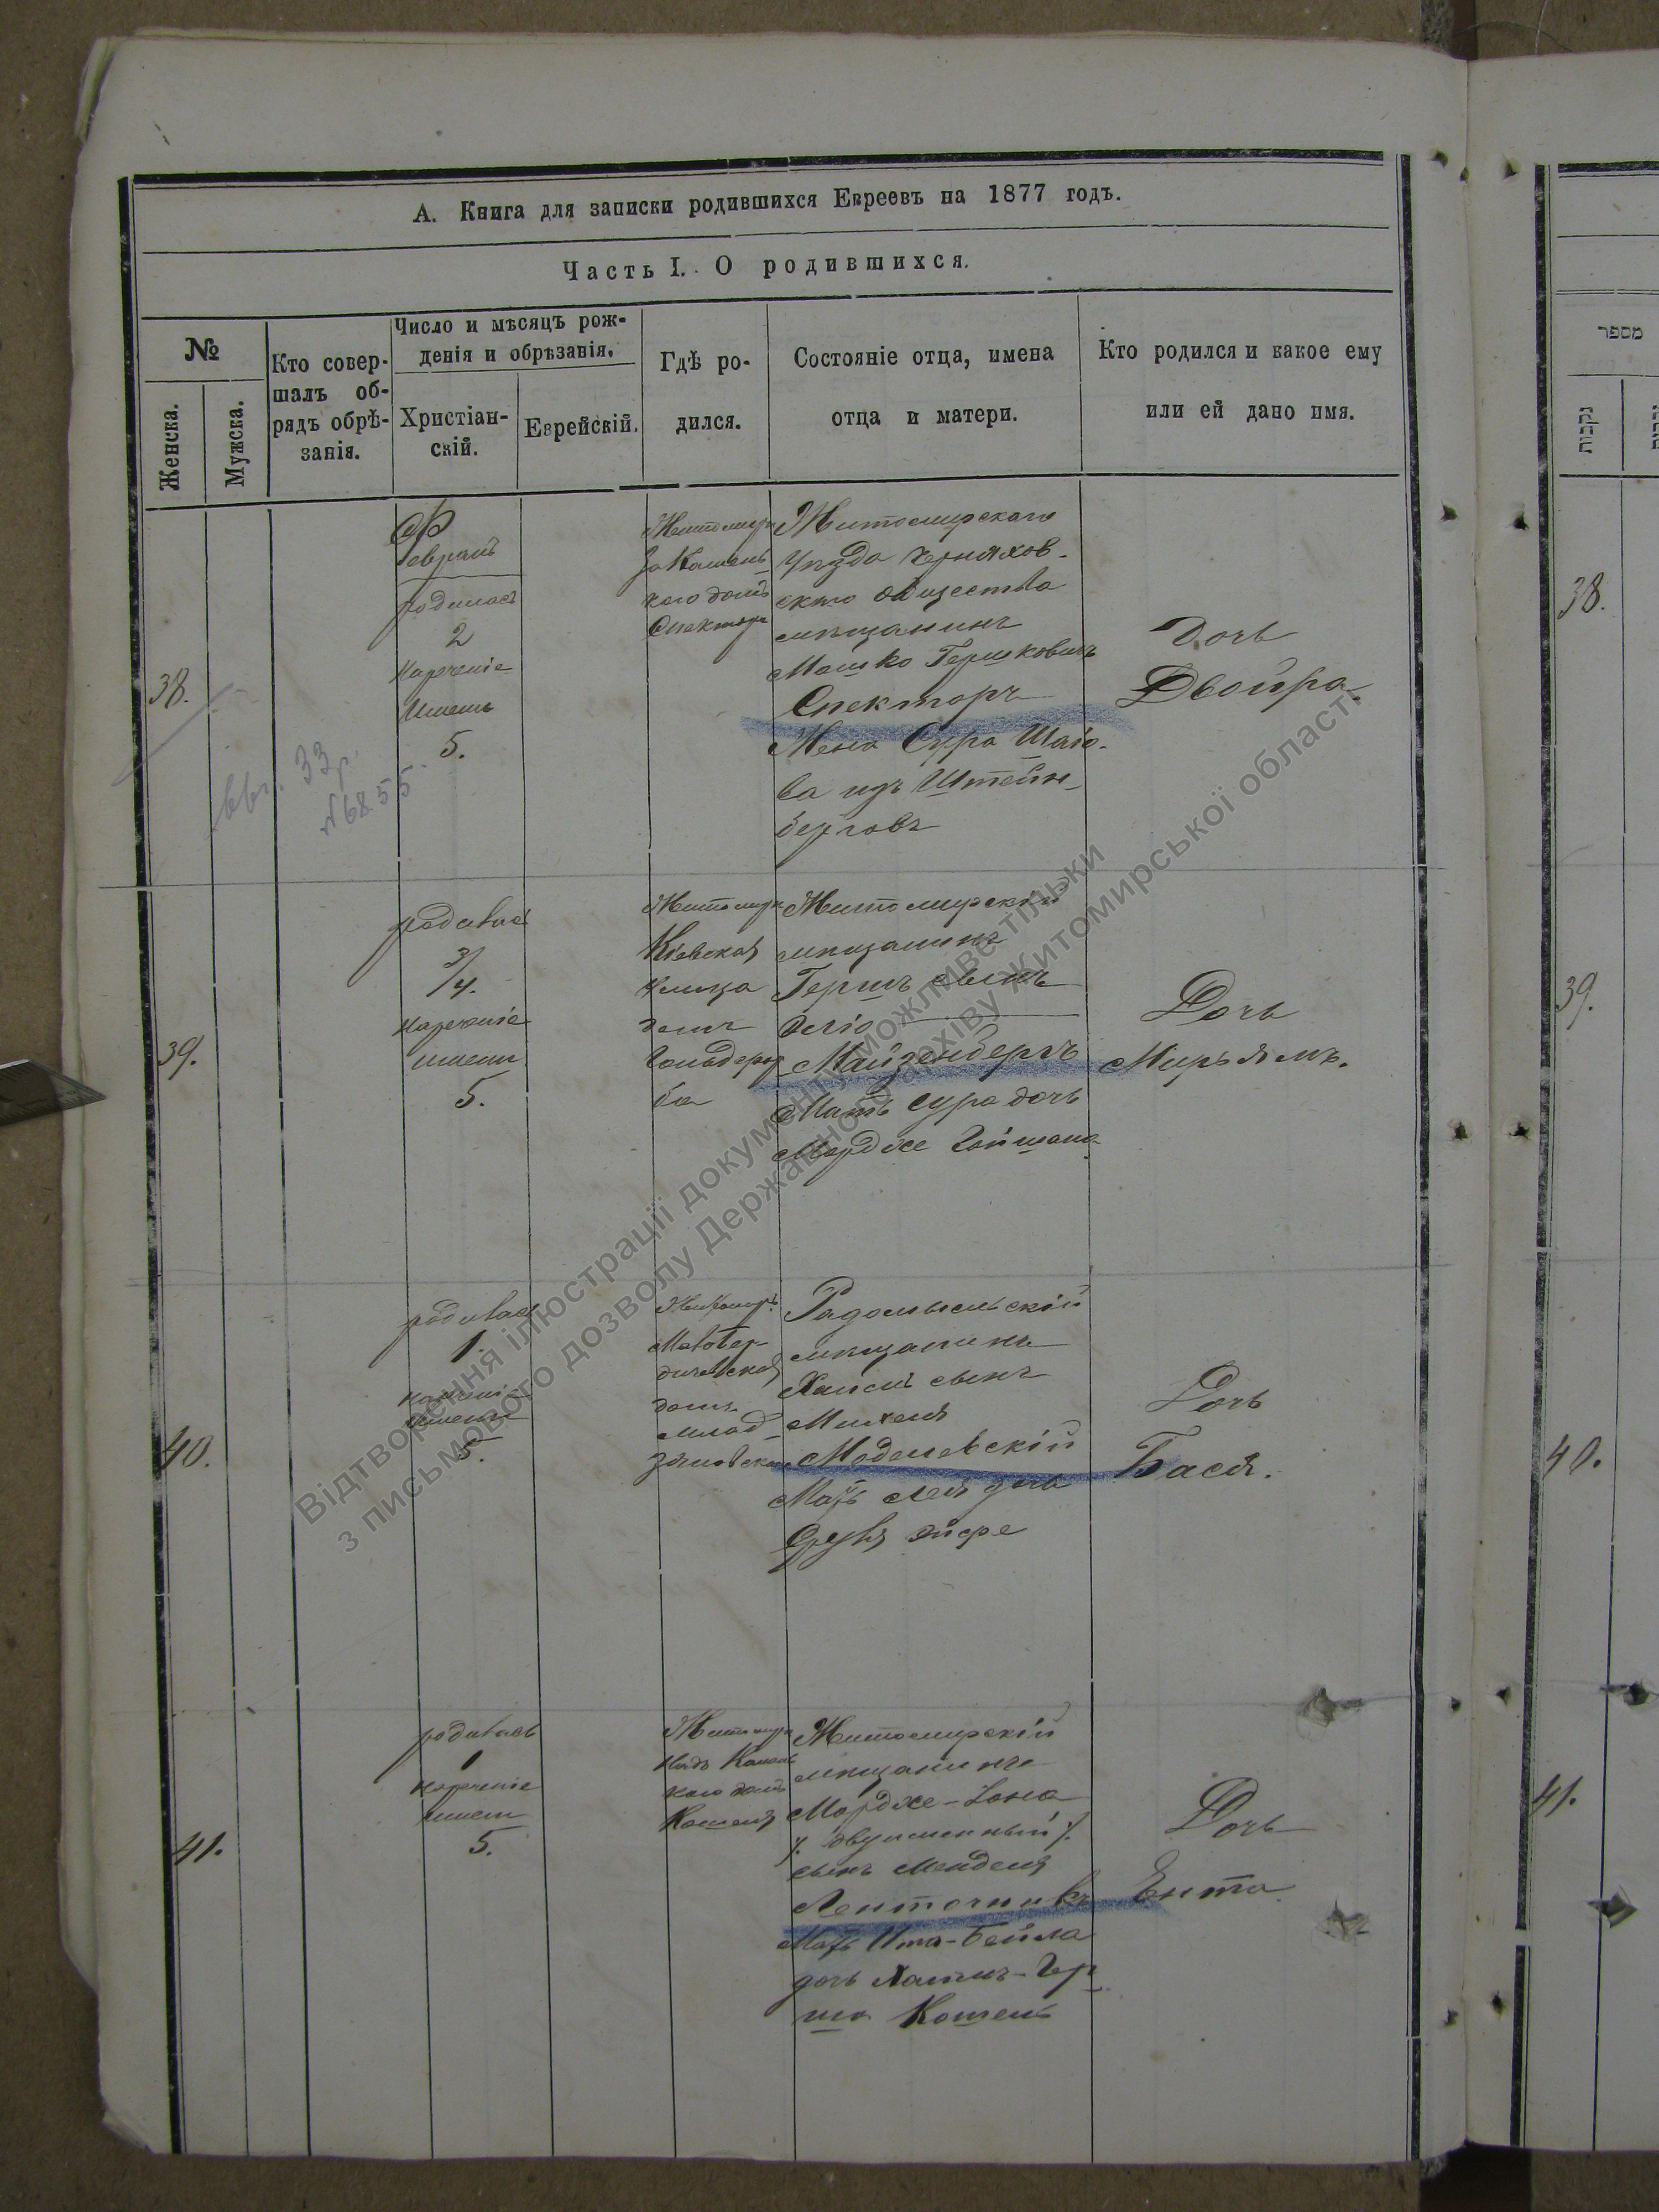 А. Книга для записки родившихся Евреевъ на 1877 годъ.
Часть I. О родившихся.
№
Женска.
Мужска.
Кто совер-
шалъ об-
рядъ обрѣ-
занія.
Число и мѣсяцъ рож-
денія и обрѣзанія.
Христіан-
скій.
Еврейскій.
Гдѣ ро-
дился.
Состояніе отца, имена
отца и матери.
Кто родился и какое ему
или ей дано имя.
38.
Февраль
родилась
2
Нареченіе
Имени
5.
Житомиръ
За Камень-
кою домъ
Спектора
Житомирскаго
Уѣзда Черняхов-
скаго общества
мѣщанинъ
Мошко Гершковичъ
Спекторъ
Жена Сура Шаiо-
ва изъ Штейн-
берговъ
Дочь
Двойра.
33 р.
№ 68.55
39.
родилась
3/4.
нареченіе
имени
5.
Житомиръ
Кіевская
улица
домъ
Гольдерб
ба
Житомирскій
мѣщанинъ
Гершъ сынъ
Майзенбергъ
Мать Сура дочь
Мордже
Дочь
Мирьямъ.
40.
родилась
1.
нареченіе
имени
5.
Житомиръ
Малобер-
дичевская
домъ
млод-
зяновскаго
Радомысльскій
мѣщанинъ
Хаимъ сынъ
Михеля
Моделевскій
Мать Лея дочь
Дочь
Бася.
41.
родилась
1
нареченіе
имени
5.
Житомиръ
надъ Камень
кою домъ
Кошеля
Житомирскій
мѣщанинъ
Мордже-Iона
/. двуименный /.
сынъ Менделя
Ленточникъ
Мать Ита-Бейла
дочь Хаимъ-Гер
ша Кошель
Дочь
Ента.
מספר
נקבות
38.
39.
40.
41.
Відтворення ілюстрації документу можливе тільки
з письмового дозволу Державного архіву Житомирської області